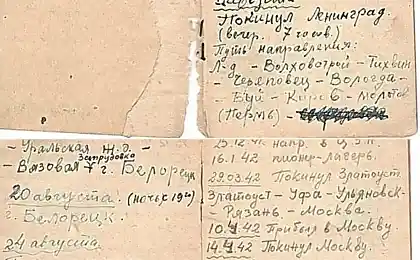 Покинул Ленинград.
(вечер. 7 часов.)
Путь направления:
Л-д - Волховстрой - Тихвин
- Череповец - Вологда -
- Буй - Киров - Молотов
(Пермь) -
- Уральская ж.д. -
Запрудовка
- Вязовая г. Белорецк
20 августа. (ночью 19го)
г. Белорецк.
24 августа
23.12.41 напр. в
16.1.42 пионер-лагерь.
29.03.42 Прибыл Златоуст
Златоуст - Уфа - Ульяновск -
- Рязань - Москва.
10.4.42 Прибыл в Москву.
14.4.42 Покинул Москву.